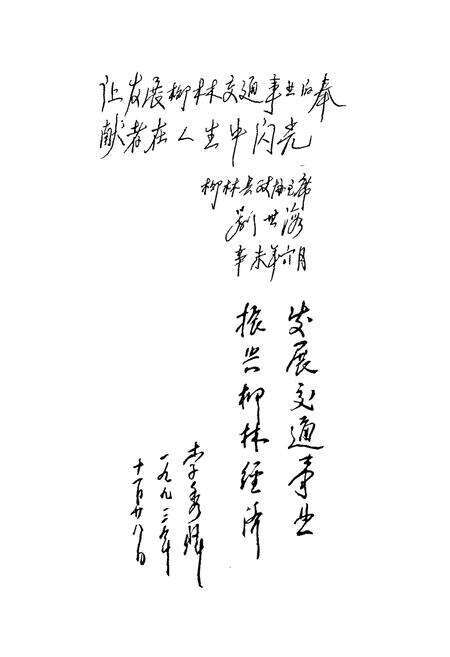 让发展柳林交通事业的奉
献者在人生中闪光
柳林县政协主席
刘世洛
辛未年六月
发展交通事业
振兴柳林经济
李秀峰
一九九三年
十一月廿八日